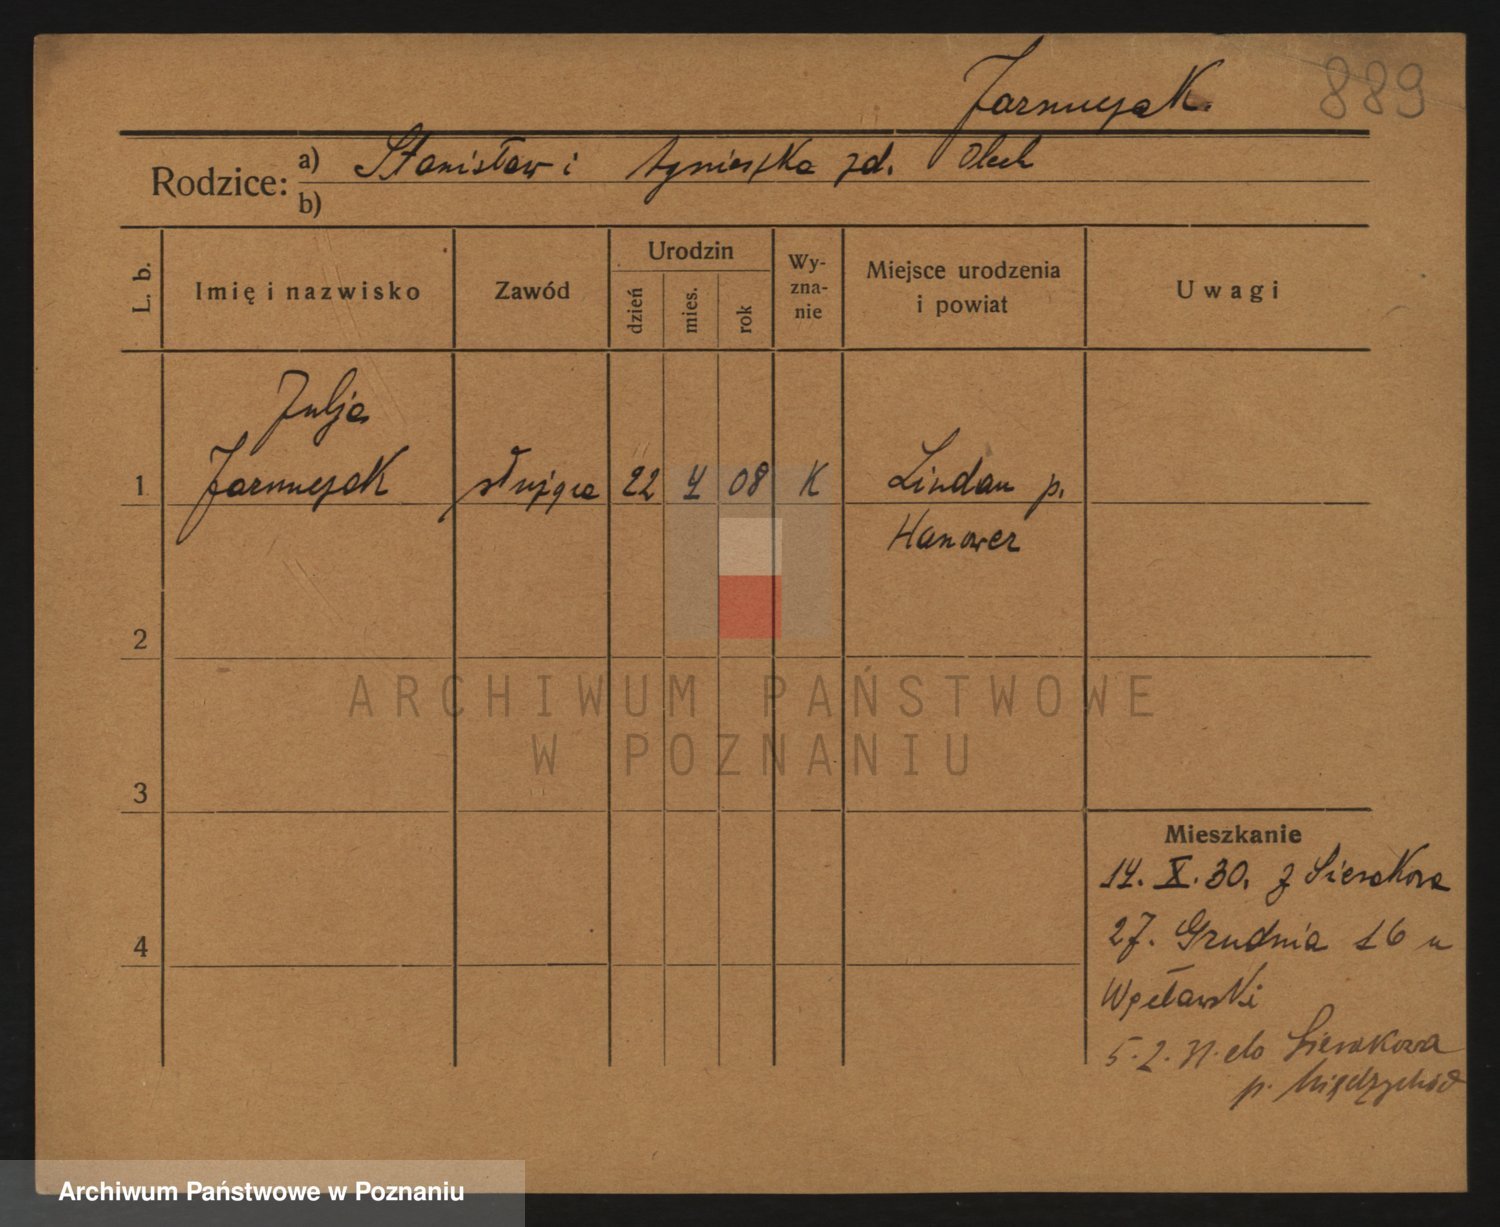 Jarmużak.
889
Rodzice: a) Stanisław i Agnieszka zd. Olech
b)
L. b.
Imię i nazwisko
Zawód
Urodzin
dzień
mies.
rok
Wy-
zna-
nie
Miejsce urodzenia
i powiat
Uwagi
Julja
1 Jarmużak służąca 22 4 08 K Lindau p.
Hanower
2
3
4
Mieszkanie
14. X. 30. z Sierakowa
27. Grudnia 16 u
5. 2. 31. do Sierakowa
p. Międzychód
ARCHIWUM PAŃSTWOWE
W POZNANIU
Archiwum Państwowe w Poznaniu